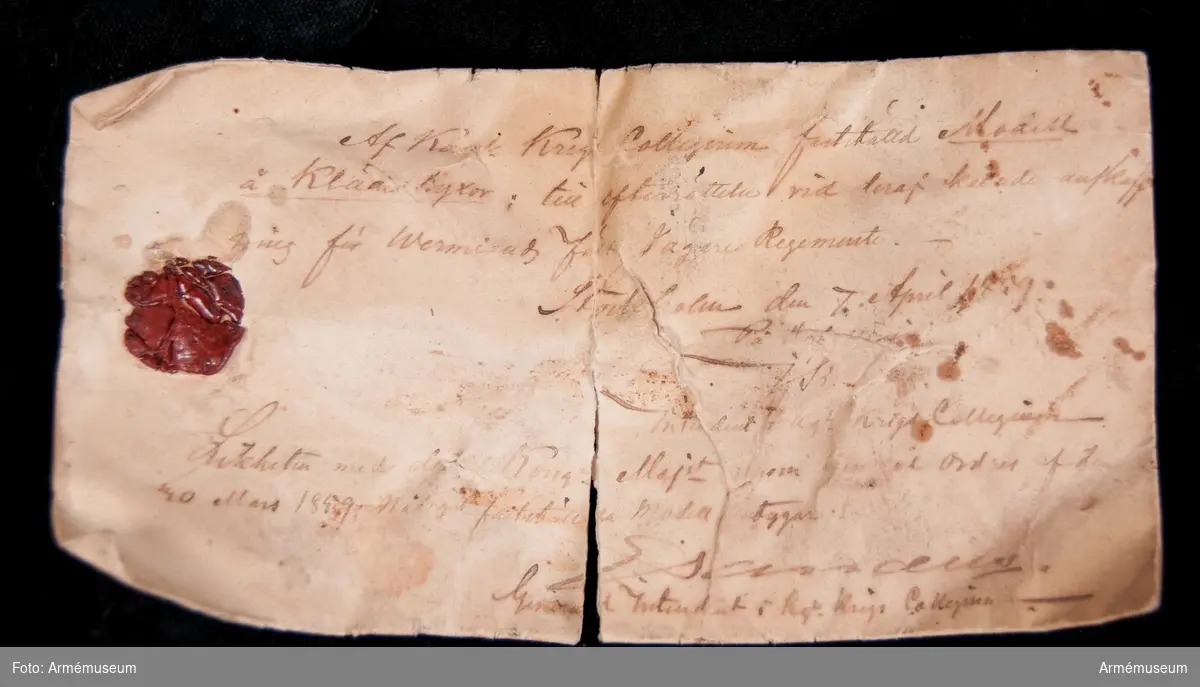 Af Kongl Krigs Collegium fastställd Modell
å Klädes Byxor, till efterrättelse vid deraf skeende anskaff
ning för Wermlands Fält Jägare Regemente. —
Stockholm den 7. April 1859.
På
Intendent i Kgs Krigs Collegium
Likheten med det af Kongl Majst genom ordres af d.
20 Mars 1859 Nådigst fastställda Modell bygger
General Intendent i Kgs Krigs Collegium —
Foto: Armémuseum
Armémuseum